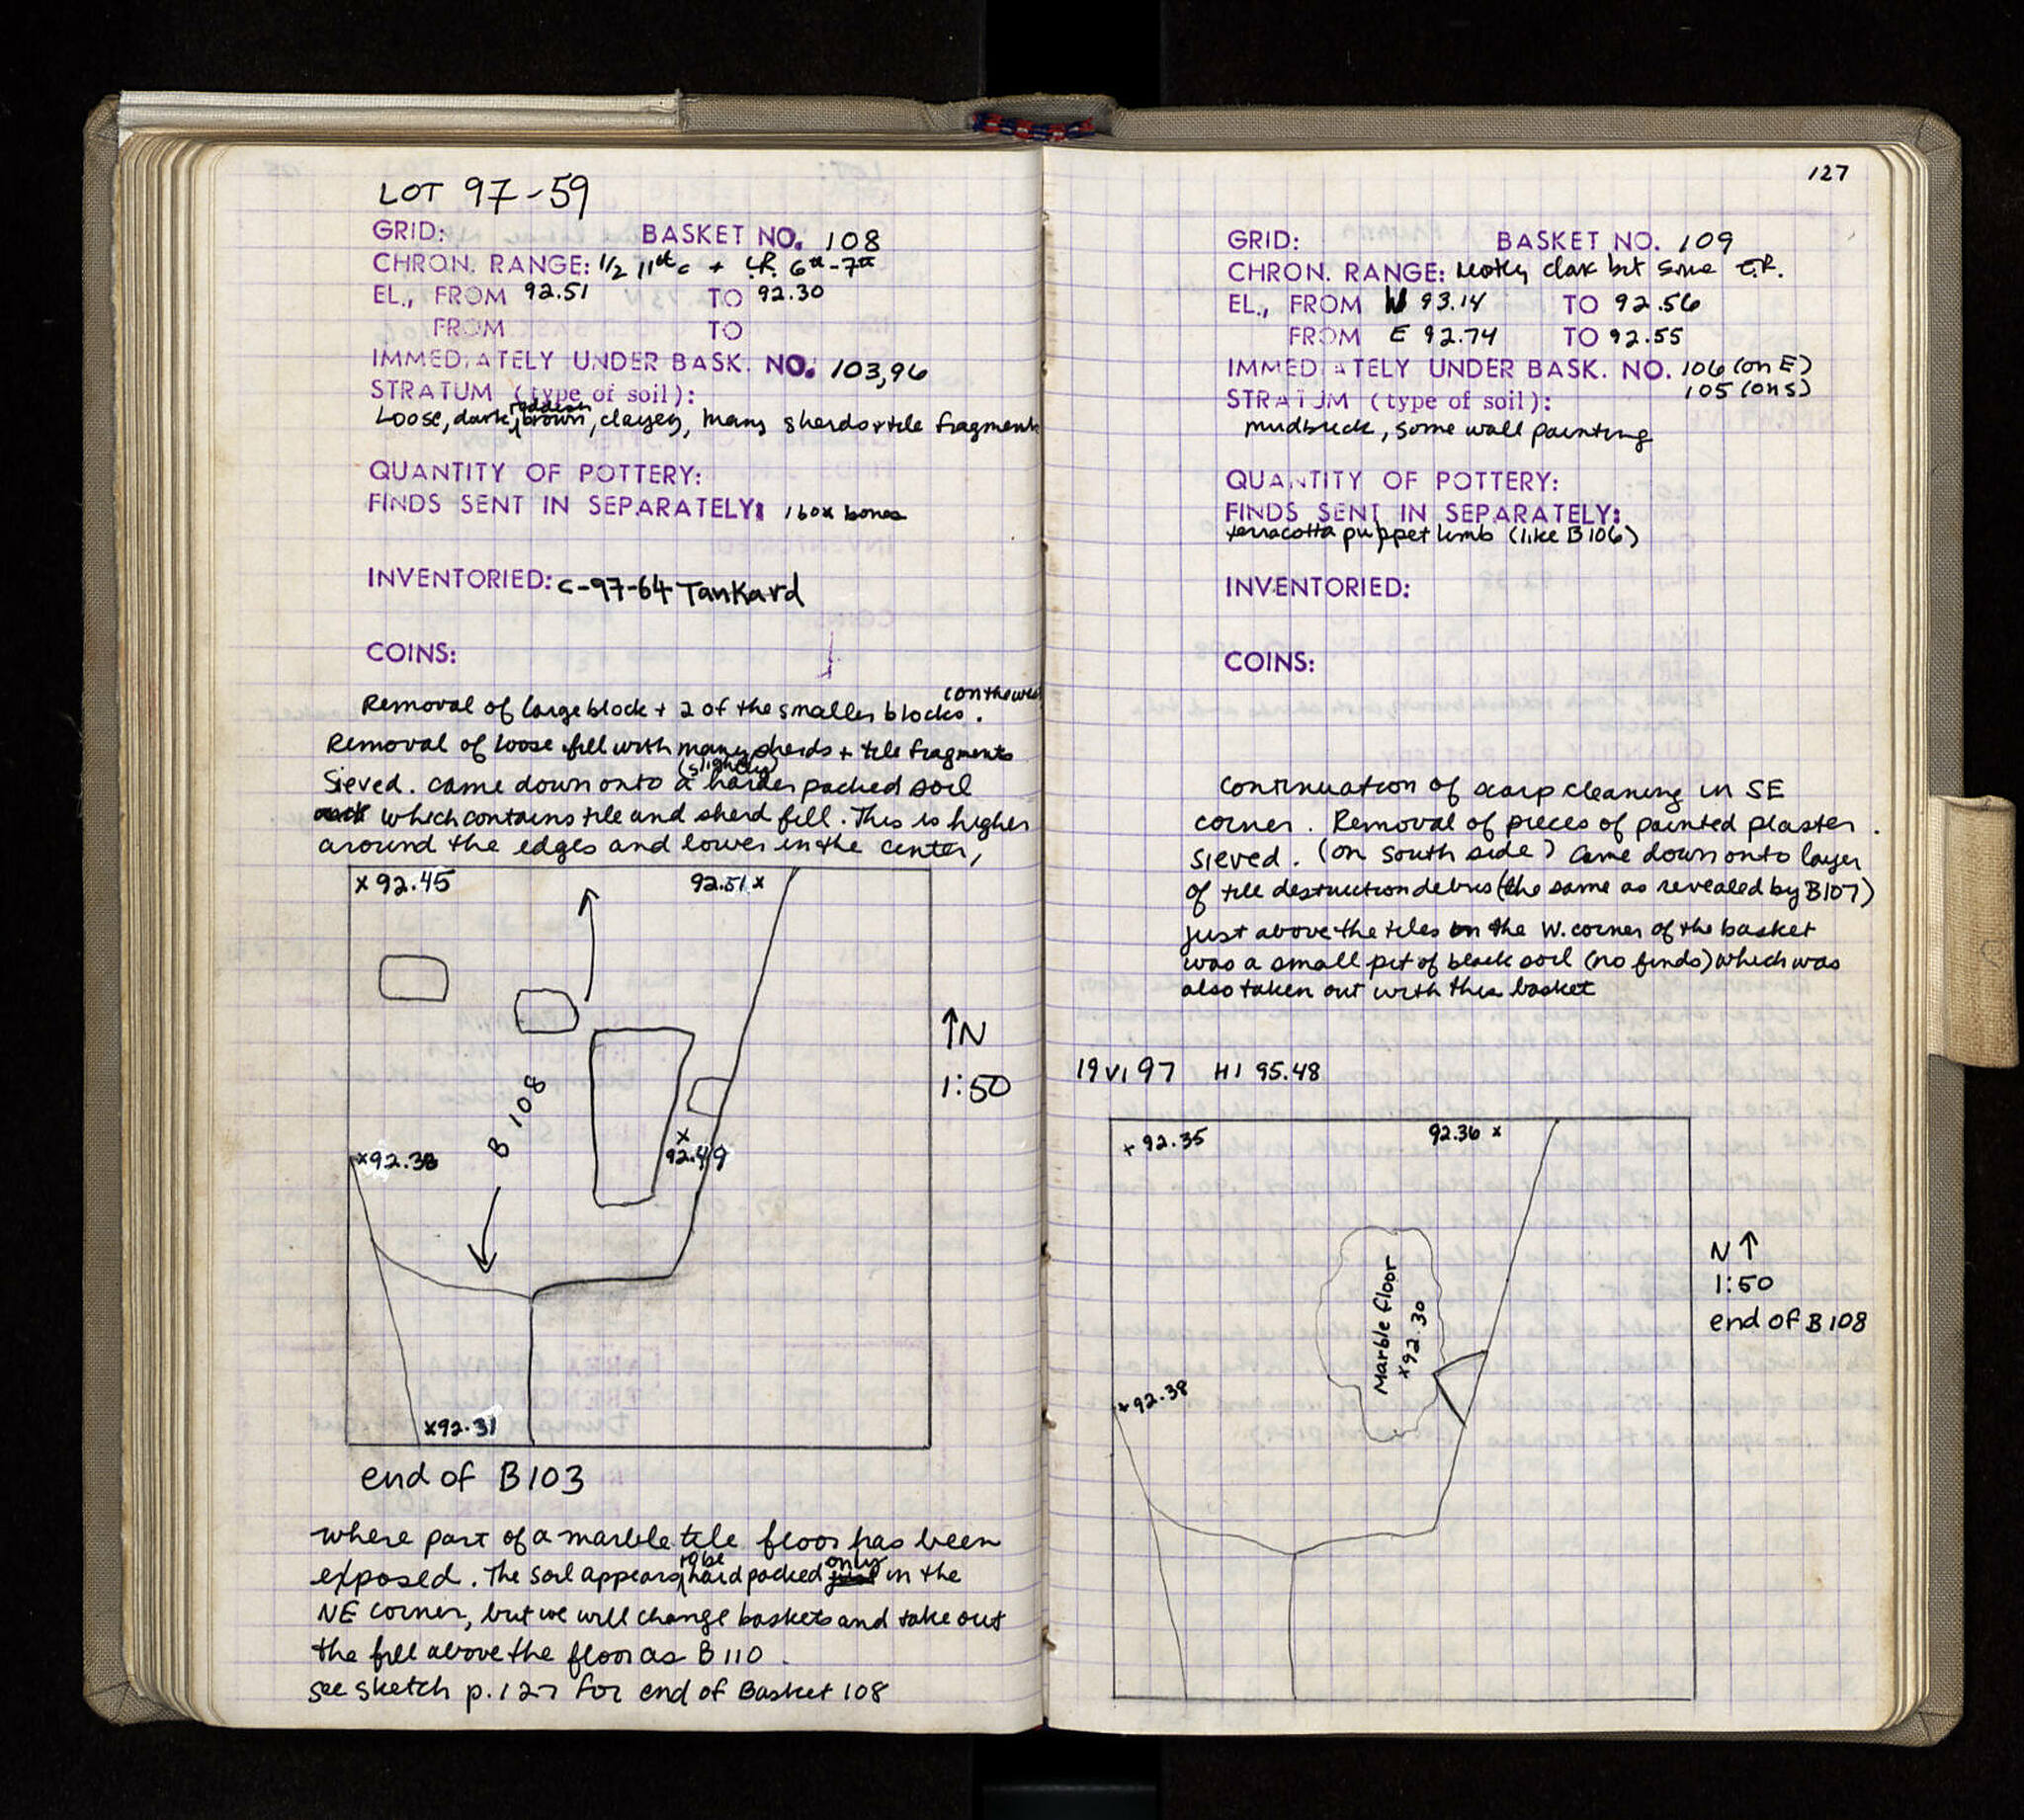 LOT 97-59
GRID: BASKET NO. 108
CHRON. RANGE: 1/2 11th c + L.R. 6th-7th
EL., FROM 92.51 TO 92.30
FROM TO
IMMEDIATELY UNDER BASK. NO: 103,96
STRATUM (type of soil):
Loose, dark, reddish brown, clayey, many sherds + tile fragments
QUANTITY OF POTTERY:
FINDS SENT IN SEPARATELY: 1 box bones
INVENTORIED: C-97-64 Tankard
COINS:
Removal of large block + 2 of the smaller blocks (on the west
Removal of loose fill with many sherds + tile fragments
Sieved. Came down onto a (slightly) harder packed soil
which contains tile and sherd fill. This is higher
around the edges and lower in the center,
x 92.45 92.51 x
↑N
1:50
B 108
x92.38
x
92.49
x92.31
end of B103
where part of a marble tile floor has been
exposed. The soil appears to be hard packed only in the
NE corner, but we will change baskets and take out
the fill above the floor as B 110.
see sketch p. 127 for end of Basket 108
127
GRID: BASKET NO. 109
CHRON. RANGE: Mostly clas but some E.R.
EL., FROM W 93.14 TO 92.56
FROM E 92.74 TO 92.55
IMMEDIATELY UNDER BASK. NO. 106 (on E)
105 (on S)
STRATUM (type of soil):
mudbrick, some wall painting
QUANTITY OF POTTERY:
FINDS SENT IN SEPARATELY:
terracotta puppet limb (like B106)
INVENTORIED:
COINS:
Continuation of scarp cleaning in SE
corner. Removal of pieces of painted plaster.
Sieved. (on South side) Came down onto layer
of tile destruction debris (the same as revealed by B107)
just above the tiles in the W. corner of the basket
was a small pit of black soil (no finds) which was
also taken out with this basket
19 VI 97 HI 95.48
+ 92.35 92.36 x
N↑
1:50
end of B108
Marble floor
x92.30
+92.38